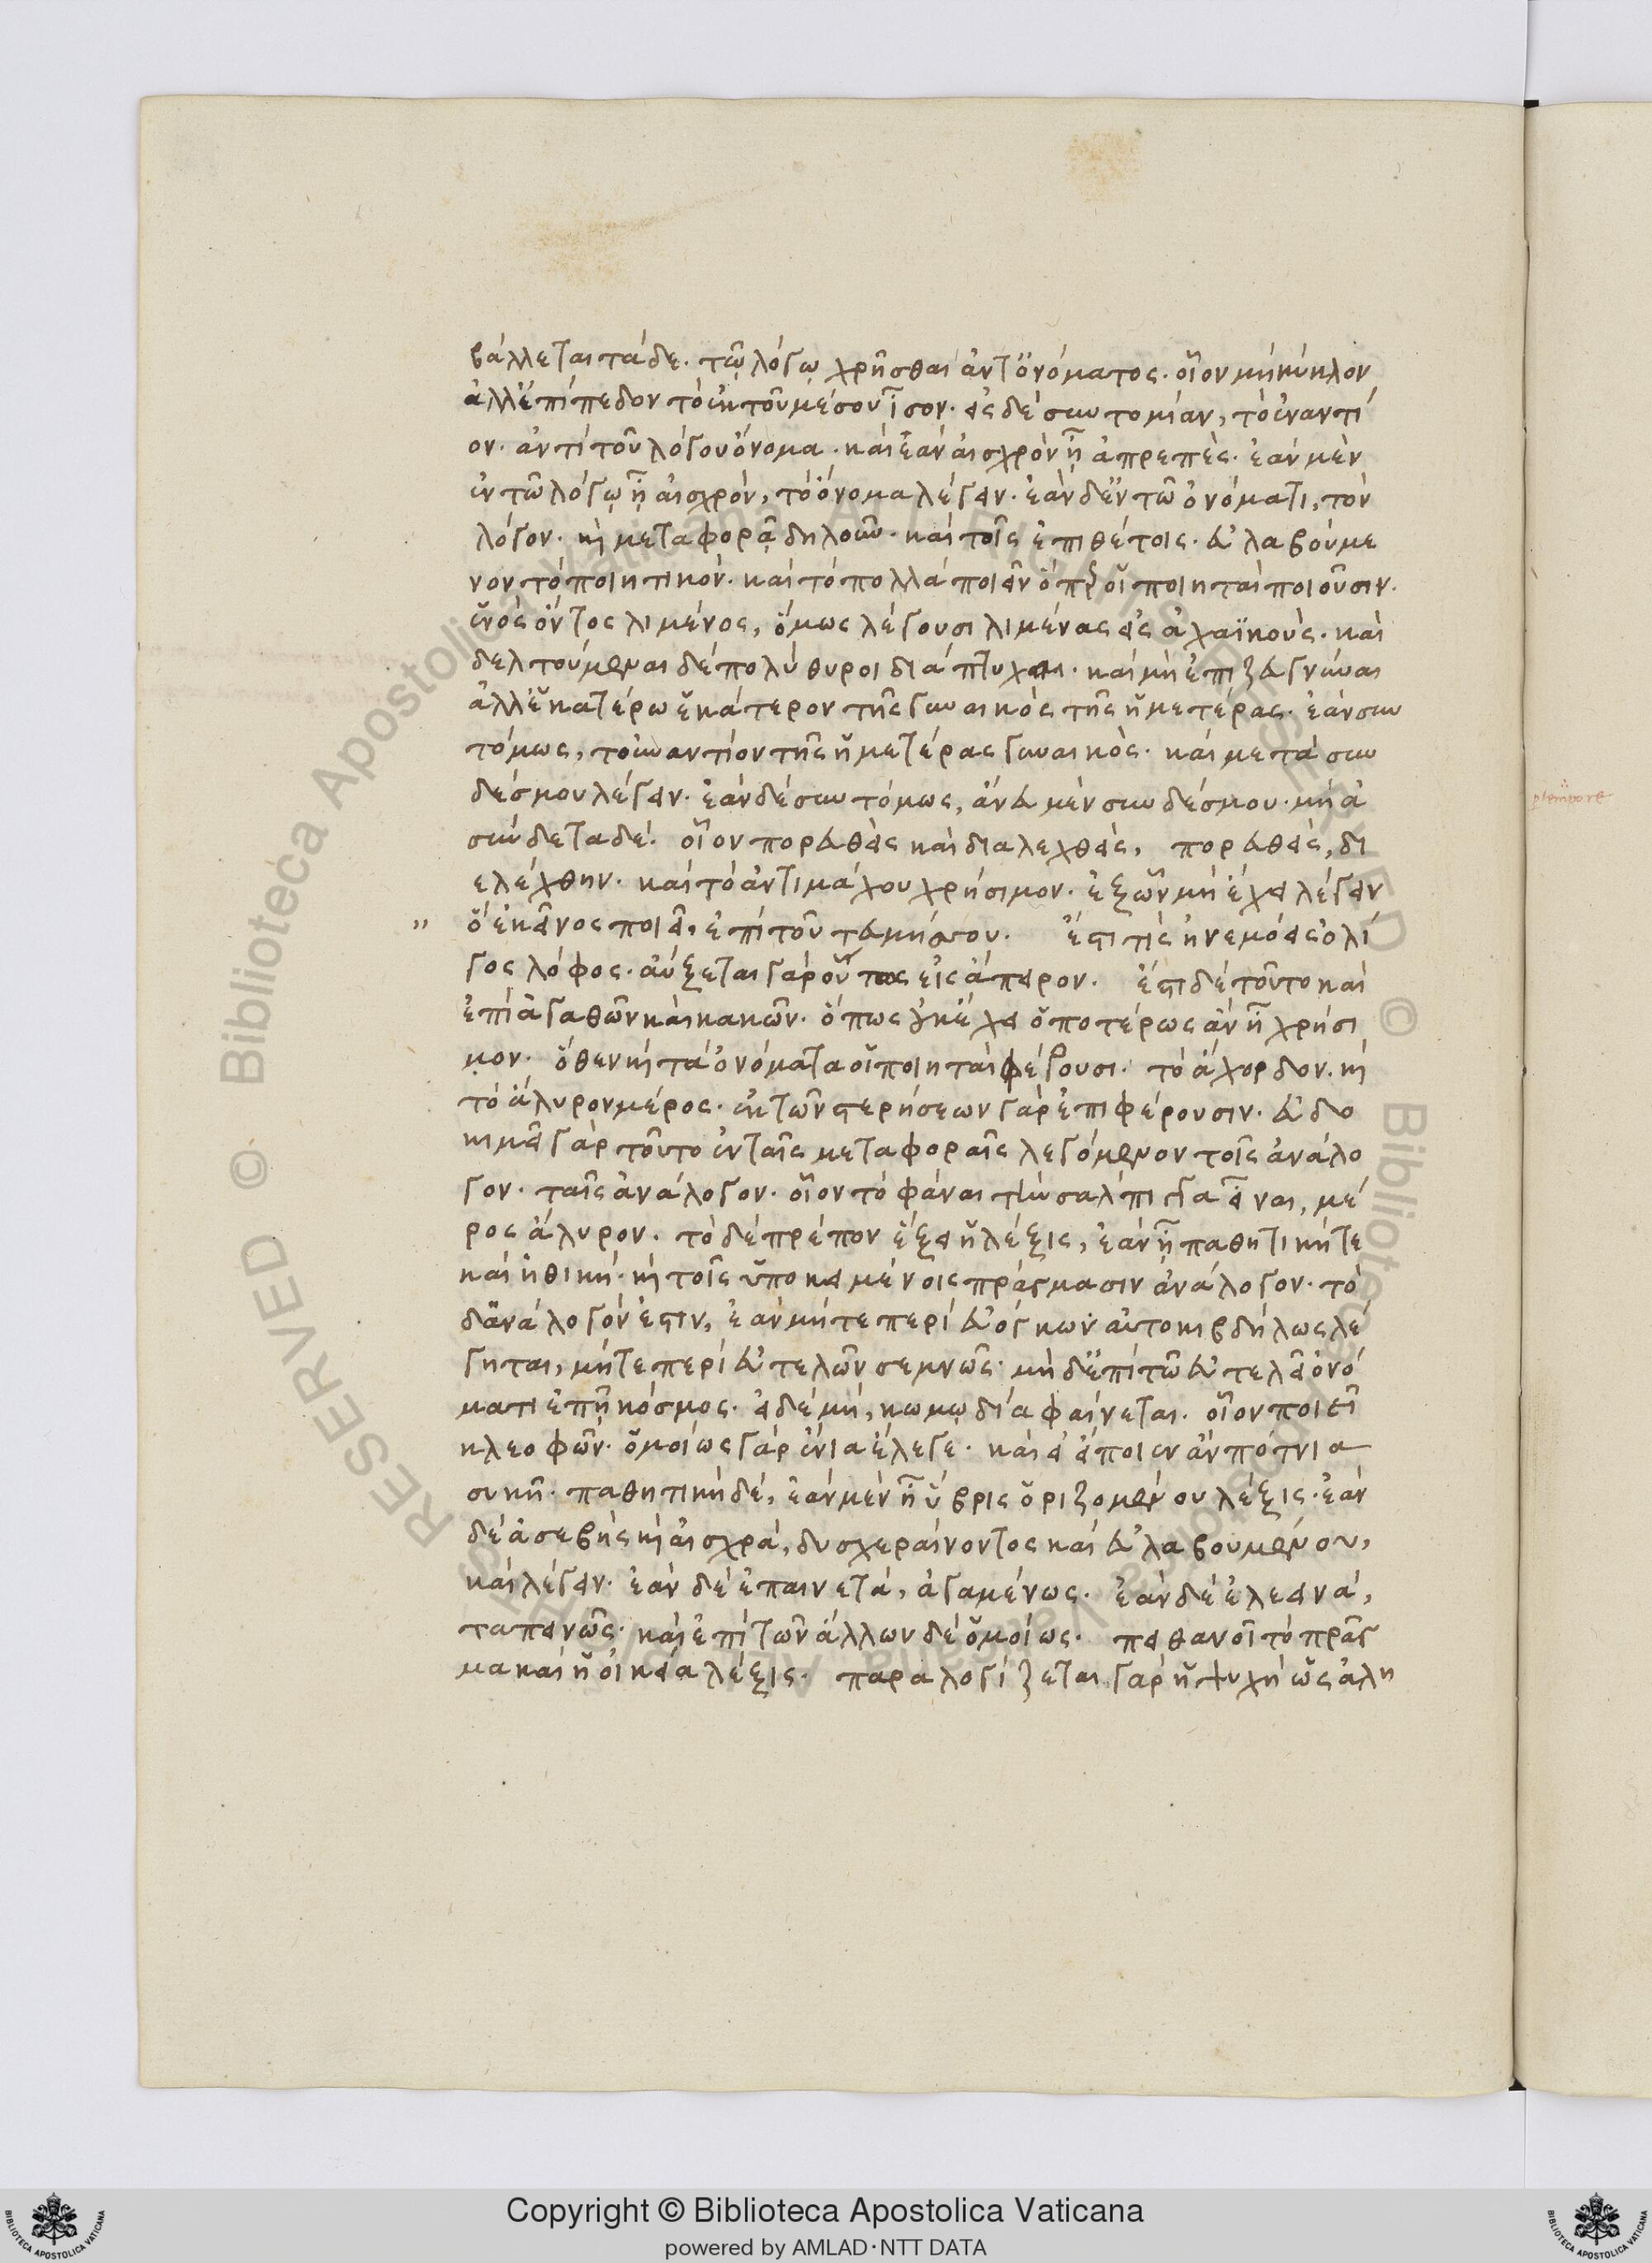 βάλλεται τάδε. τῷ λόγῳ χρῆσθαι ἀντ ὀνόματος. οἷον μὴ κύκλον
ἀλλ ἐπίπεδον τὸ ἐκ τοῦ μέσου ἴσον. εἰς δὲ συντομίαν, τὸ ἐναντί
ον. ἀντὶ τοῦ λόγου ὄνομα. καὶ ἐὰν αἰσχρὸν ᾖ ἀπρεπὲς. ἐὰν μὲν
ἐν τῶ λόγῳ ᾖ αἰσχρὸν, τὸ ὄνομα λέγειν. ἐὰν δ ἐν τῶ ὀνόματι, τὸν
λόγον. καὶ μεταφορᾷ δηλοῦν. καὶ τοῖς ἐπιθέτοις. εὐλαβούμε
νον τὸ ποιητικόν. καὶ τὸ πολλὰ ποιεῖν ὅπερ οἱ ποιηταὶ ποιοῦσιν.
ἑνὸς ὄντος λιμένος, ὅμως λέγουσι λιμένας εἰς ἀχαϊκούς. καὶ
δελτούμεναι δὲ πολύθυροι διάπτυχαι. καὶ μὴ ἐπιζευγνύναι
ἀλλ ἑκατέρω ἑκάτερον τῆς γυναικὸς τῆς ἡμετέρας. ἐὰν συν
τόμως, τὸ ἐναντίον τῆς ἡμετέρας γυναικὸς. καὶ μετὰ συν
δέσμου λέγειν. ἐὰν δὲ συντόμως, ἄνευ μὲν συνδέσμου. μὴ ἀ
σύνδετα δὲ. οἷον πορευθεὶς καὶ διαλεχθεὶς, πορευθεὶς, δι
ελέχθην. καὶ τὸ ἀντιμάχου χρήσιμον. ἐξ ὧν μὴ ἔχει λέγειν
" ὃ ἐκεῖνος ποιεῖ, ἐπὶ τοῦ τευμήσσου. ἔστι τις ἠνεμόεις ὀλί
γος λόφος. αὔξεται γὰρ οὕτως εἰς ἄπειρον. ἔστι δὲ τοῦτο καὶ
ἐπὶ ἀγαθῶν καὶ κακῶν. ὅπως οὐκ ἔχει ὁποτέρως ἂν ᾖ χρήσι
μον. ὅθεν καὶ τὰ ὀνόματα οἱ ποιηταὶ φέρουσι. τὸ ἄχορδον. καὶ
τὸ ἄλυρον μέρος. ἐκ τῶν στερήσεων γὰρ ἐπιφέρουσιν. εὐδο
κιμεῖ γὰρ τοῦτο ἐν ταῖς μεταφοραῖς λεγόμενον τοῖς ἀνάλο
γον. ταῖς ἀνάλογον. οἷον τὸ φάναι τὴν σάλπιγγα εἶναι, μέ
ρος ἄλυρον. τὸ δὲ πρέπον ἕξει ἡ λέξις, ἐὰν ᾖ παθητικήτε
καὶ ἠθική. καὶ τοῖς ὑποκειμένοις πράγμασιν ἀνάλογον. τὸ
δ ἀνάλογόν ἐστιν, ἐὰν μήτε περὶ εὐόγκων αὐτοκιβδήλως λέ
γηται, μήτε περὶ εὐτελῶν σεμνῶς. μὴ δ ἐπὶ τῶ εὐτελεῖ ὀνό
ματι ἐπῇ κόσμος. εἰ δὲ μή, κωμῳδία φαίνεται. οἷον ποιεῖ
κλεοφῶν. ὁμοίως γὰρ ἔνια ἔλεγε. καὶ εἰ εἴποιεν ἂν πότνια
συκῆ. παθητικὴ δέ, ἐὰν μὲν ᾖ ὕβρις ὀριζομένου λέξις. ἐὰν
δὲ ἀσεβὴς καὶ αἰσχρά, δυσχεραίνοντος καὶ εὐλαβουμένου,
καὶ λέγειν. ἐὰν δὲ ἐπαινετά, ἀγαμένως. ἐὰν δὲ ἐλεεινά,
ταπεινῶς. καὶ ἐπὶ τῶν ἄλλων δὲ ὁμοίως. πειθανοῖ τὸ πρᾶγ
μα καὶ ἡ οἰκεία λέξις. παραλογίζεται γὰρ ἡ ψυχὴ ὡς ἀλη
RESERVED © Biblioteca Apostolica Vaticana
Copyright © Biblioteca Apostolica Vaticana
powered by AMLAD·NTT DATA
BIBLIOTECA APOSTOLICA VATICANA
BIBLIOTECA APOSTOLICA VATICANA